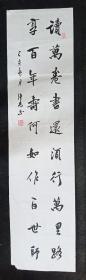 讀萬卷書還須行萬里路
享百年壽何如作百世師